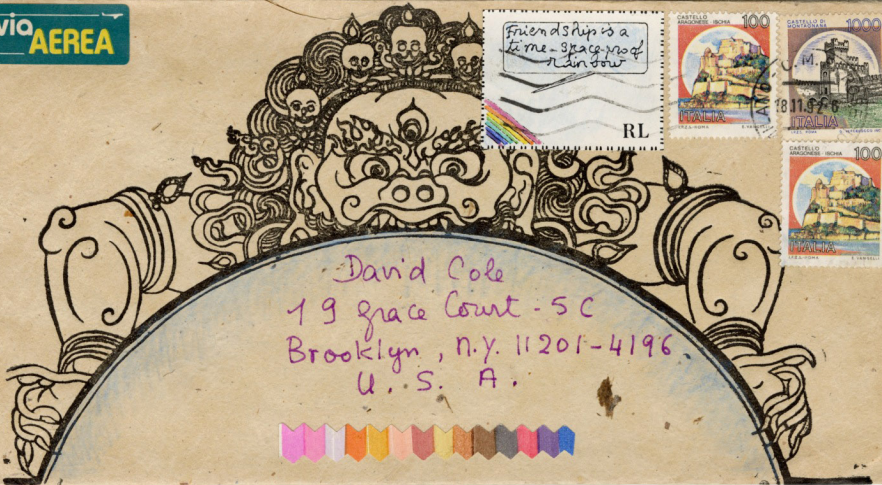 via
AEREA
Friendship is a
time-space-proof
rainbow
RL
CASTELLO
ARAGONESE - ISCHIA
100
ITALIA
I.P.Z.S. - ROMA
CASTELLO DI
MONTAGNANA
1000
18.11.
ITALIA
I.P.Z.S. ROMA
CASTELLO
ARAGONESE - ISCHIA
100
ITALIA
I.P.Z.S. - ROMA
David Cole
19 Grace Court - 5C
Brooklyn, N.Y. 11201-4196
U. S. A.